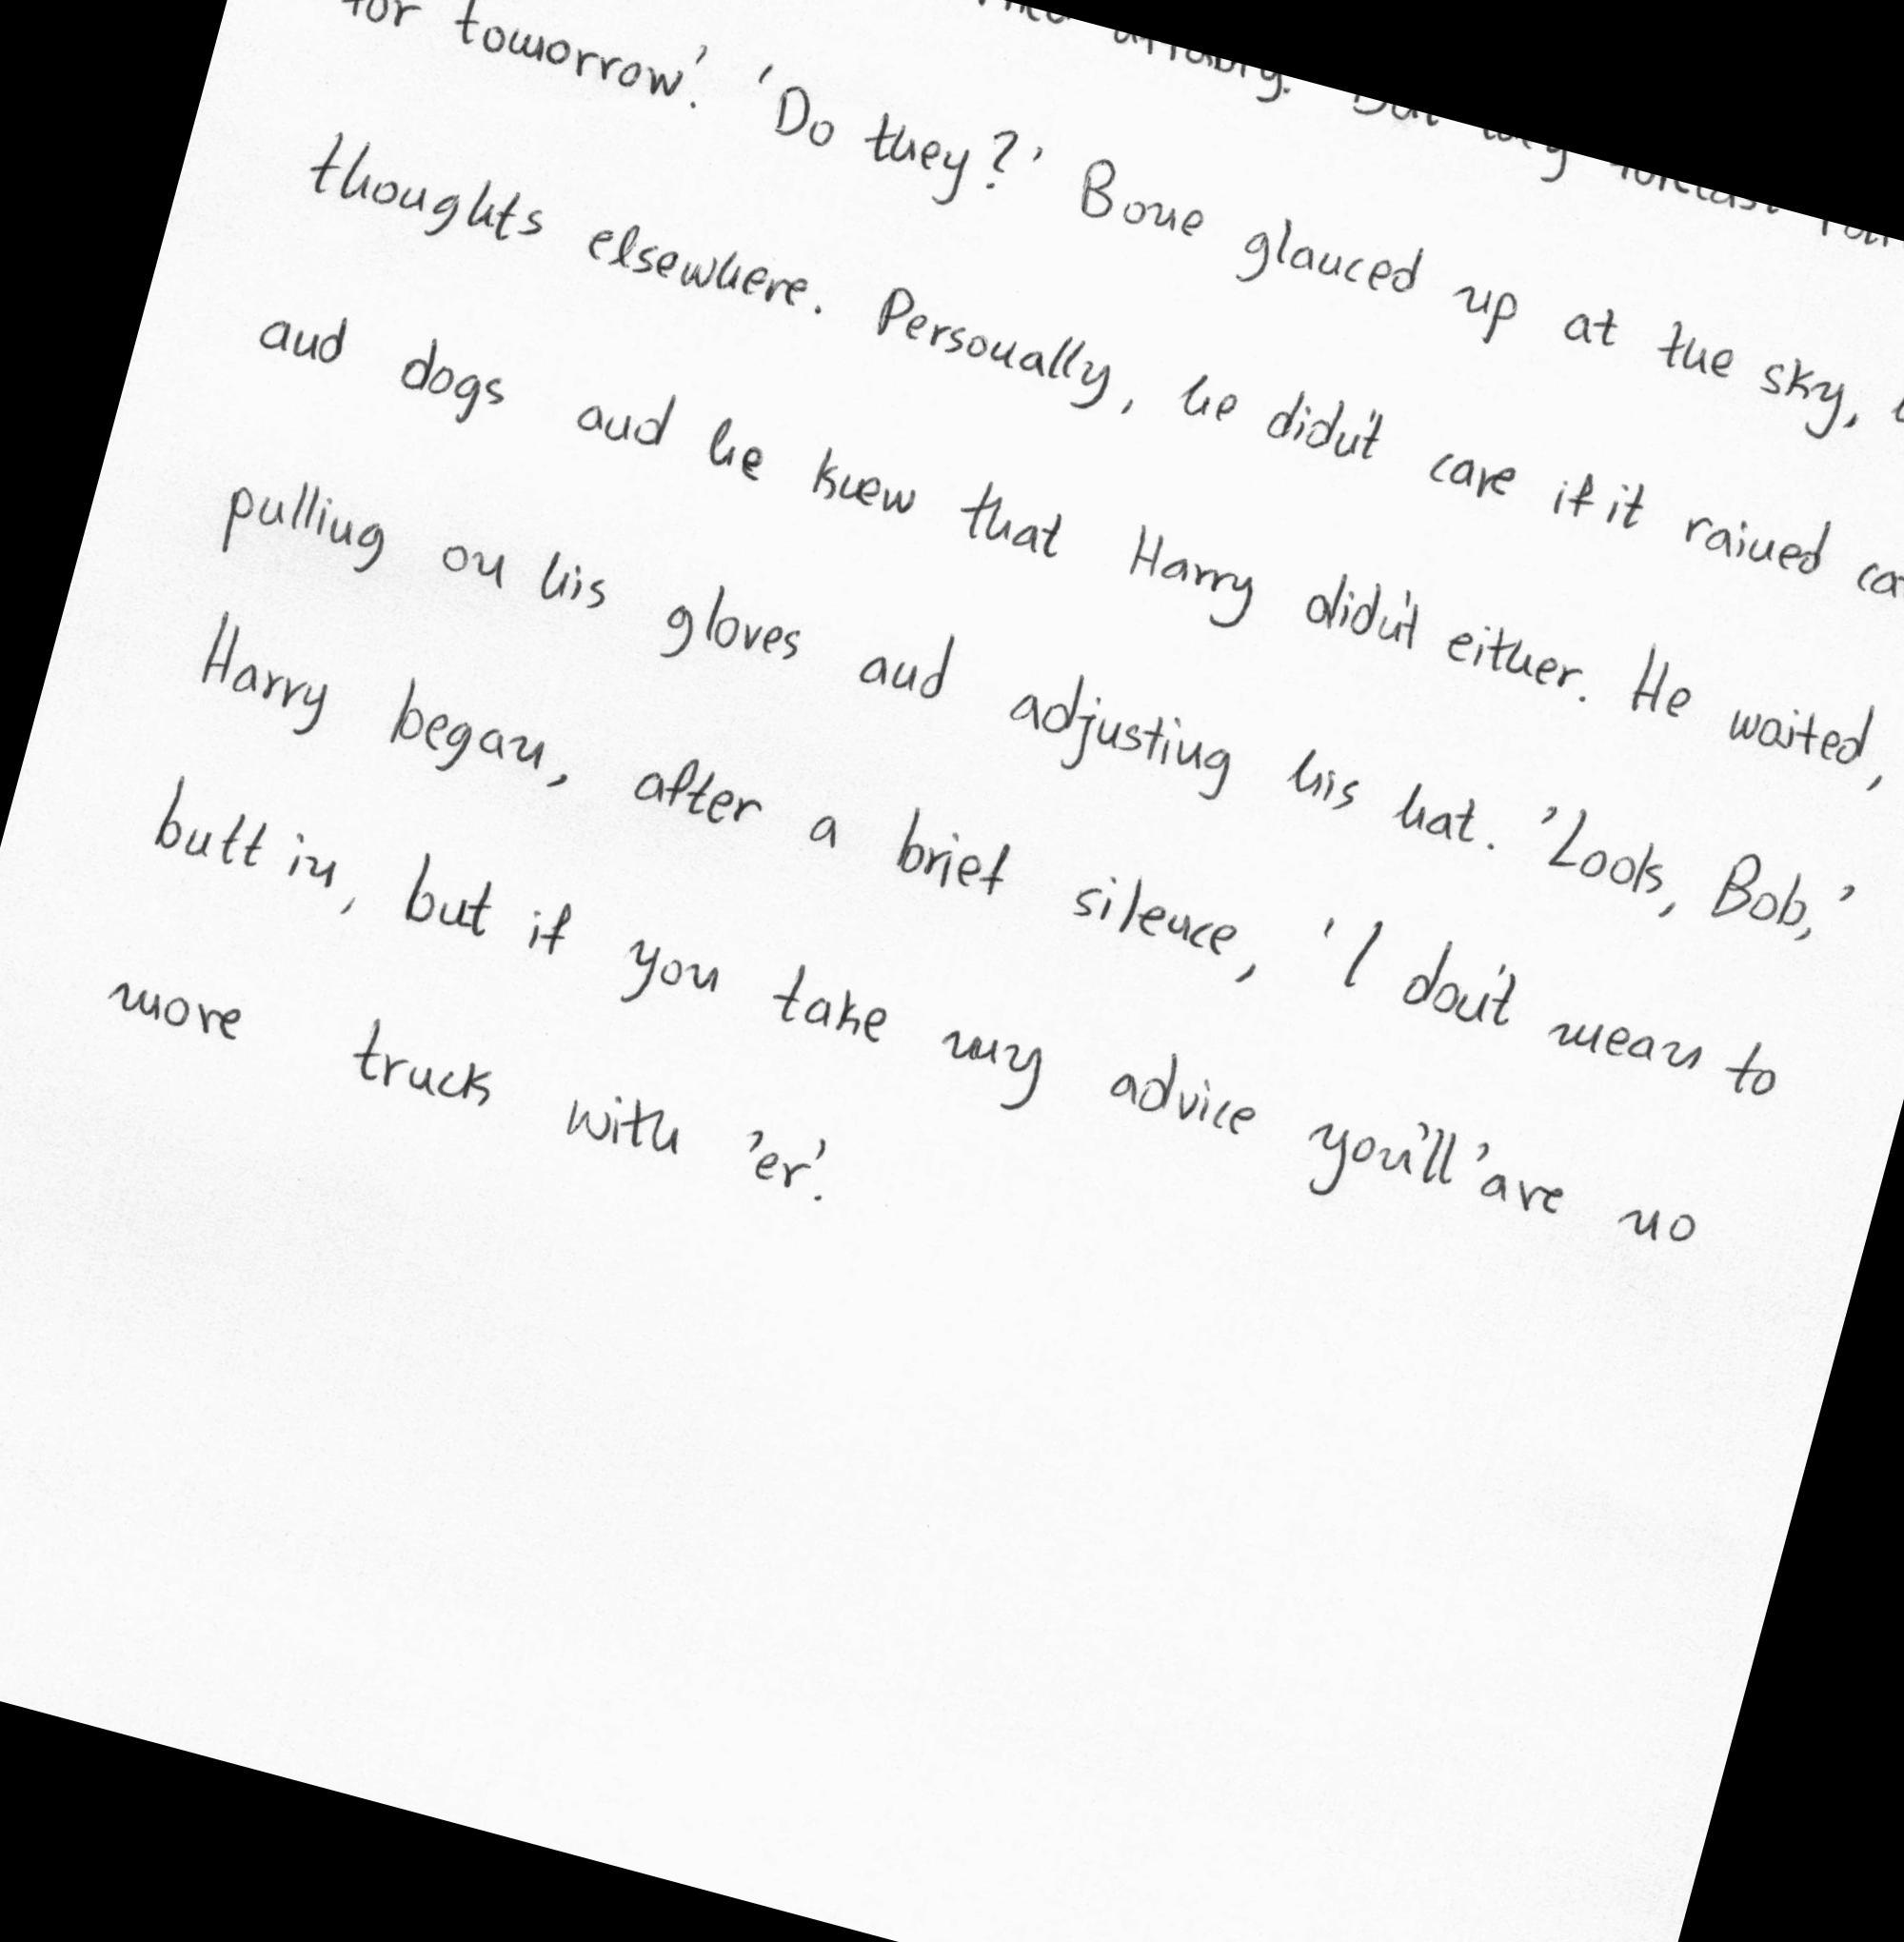 affably. But they forecast rain
for tomorrow'. 'Do they?' Bone glanced up at the sky,
thoughts elsewhere. Personally, he didn't care if it rained
and dogs and he knew that Harry didn't either. He waited,
pulling on his gloves and adjusting his hat. 'Look, Bob,'
Harry began, after a brief silence, 'I don't mean to
butt in, but if you take my advice you'll 'ave no
more truck with 'er'.